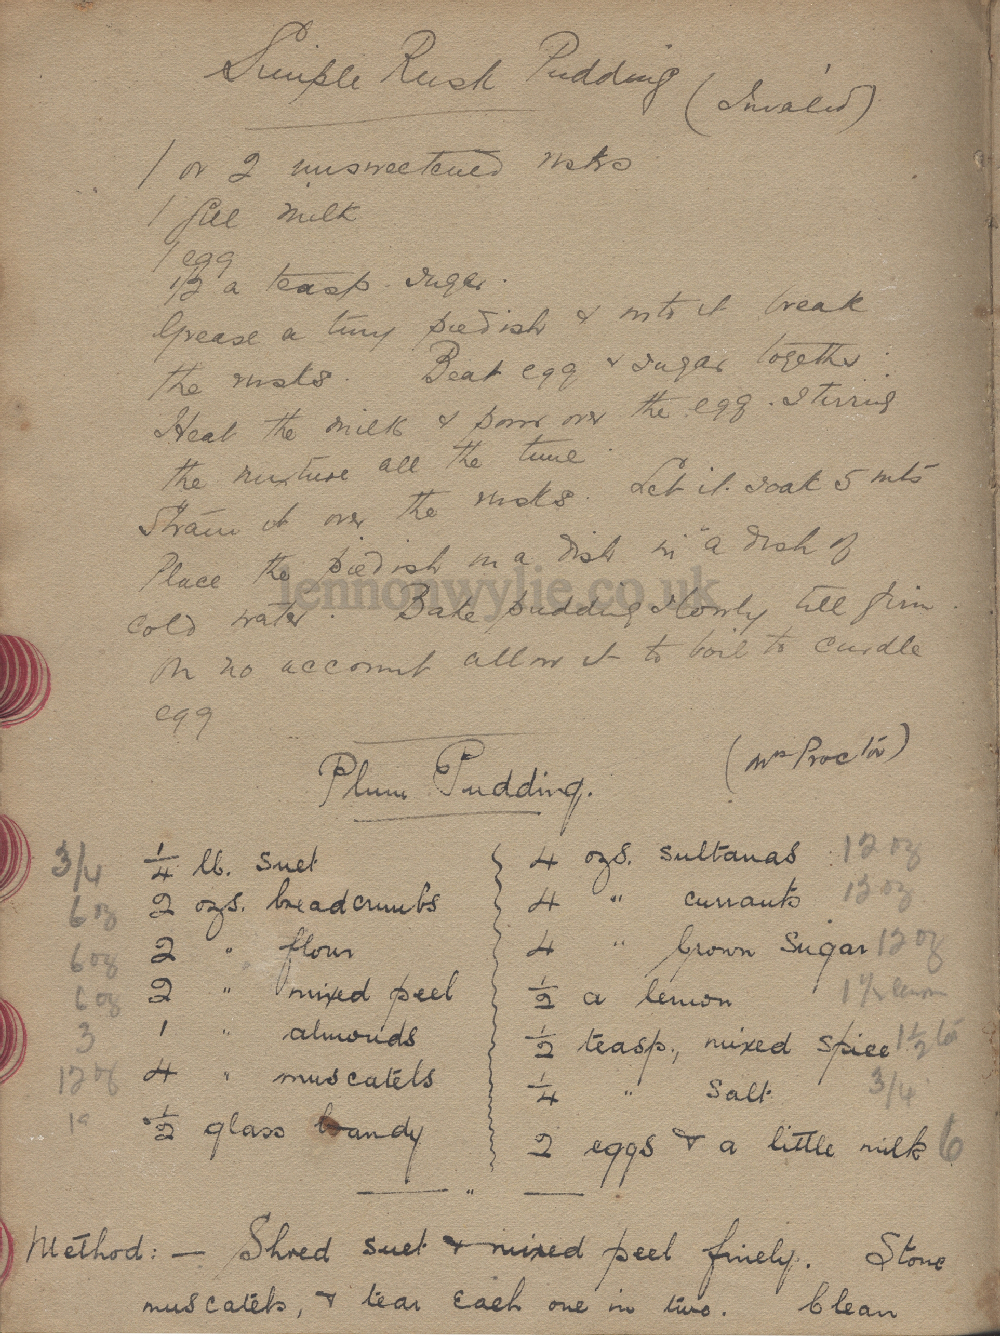 Simple Rusk Pudding (Invalid)
1 or 2 unsweetened rusks
1 gill milk
1 egg
1/2 a teasp. sugar.
Grease a tiny piedish & into it break
the rusks. Beat egg & sugar together.
Heat the milk & pour over the egg. Stirring
the mixture all the time.
Strain it over the rusks. Let it soak 5 mts
Place the piedish in a dish in a dish of
cold water. Bake pudding slowly till firm.
On no account allow it to boil to curdle
egg
lennonwylie.co.uk
Plum Pudding. (Mrs Proctor)
3/4 1/4 lb. suet 4 ozs. sultanas 12 oz
6 oz 2 ozs. breadcrumbs 4 " currants 12 oz
6 oz 2 " flour 4 " brown sugar 12 oz
6 oz 2 " mixed peel 1/2 a lemon 1 1/2 lemon
3 1 " almonds 1/2 teasp., mixed spice 1 1/2
12 oz 4 " muscatels 1/4 " salt 3/4
1/2 glass brandy 2 eggs & a little milk 6
Method: — Shred suet & mixed peel finely. Stone
muscatels, & tear each one in two. Clean